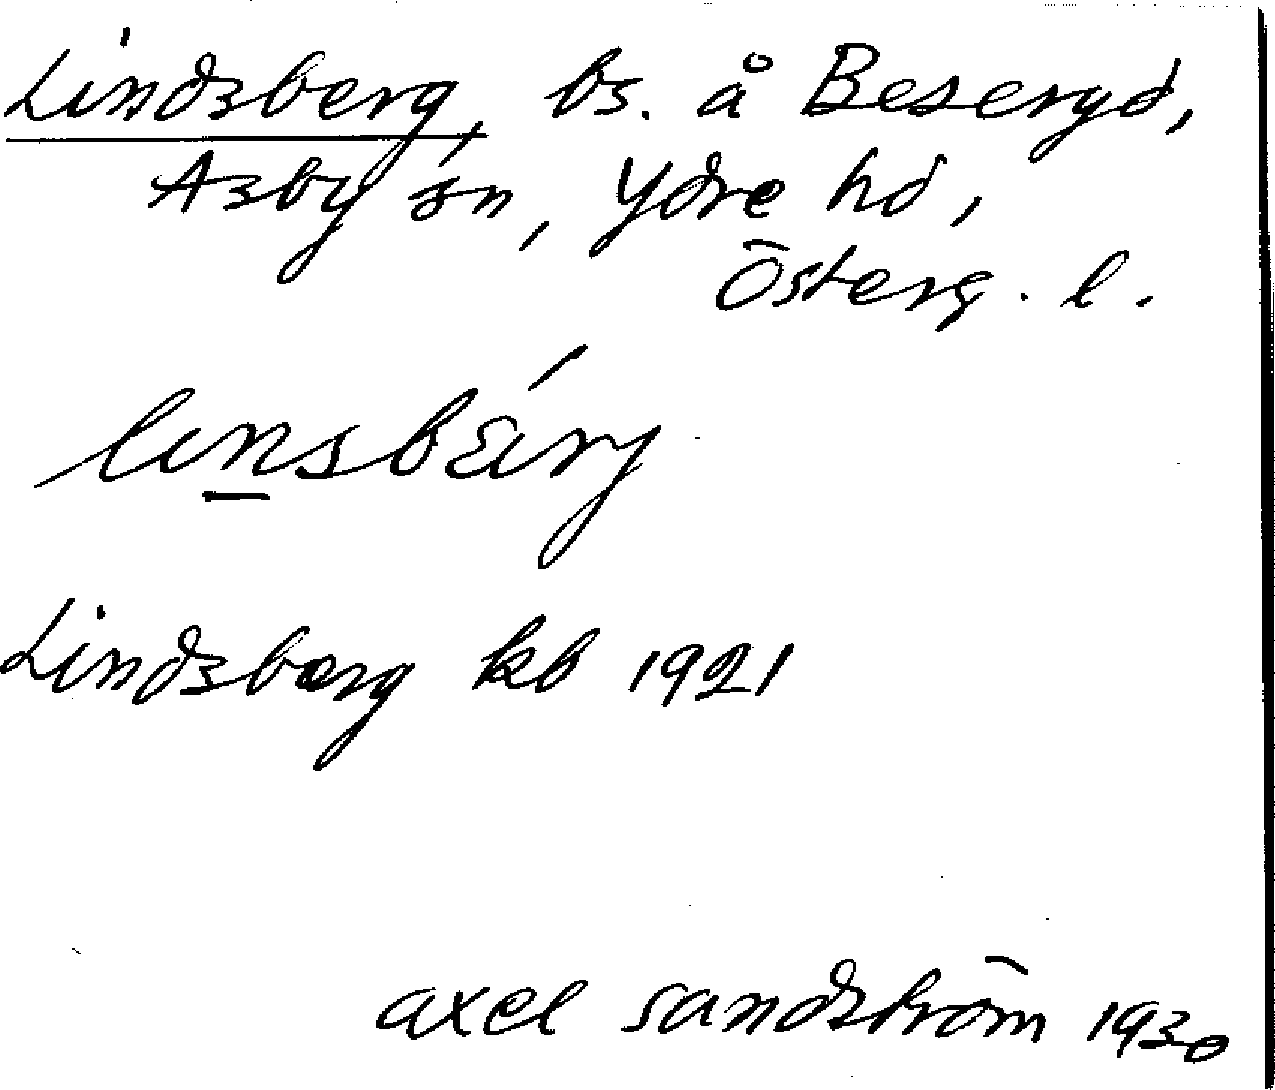 Lindsberg, bs. å Besergd,
Asby sn, Ydre hd,
Österg. l.
linsbärj
Lindsberg kb 1921
Axel Sandström 1930